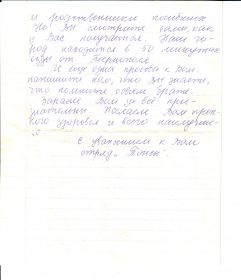 и родственникам погибших.
Но Вы смотрите сами, как
у Вас получится. Наш го-
род находится в 50 минутах
езды от Тернополя.
И ещё одна просьба к Вам
напишите нам, что Вы знаете,
что помните о своём брате.
Заранее Вам за всё приз-
нательны. Желаем Вам креп-
кого здоровья и всего наилучше-
го
С уважением к Вам
отряд „Поиск"